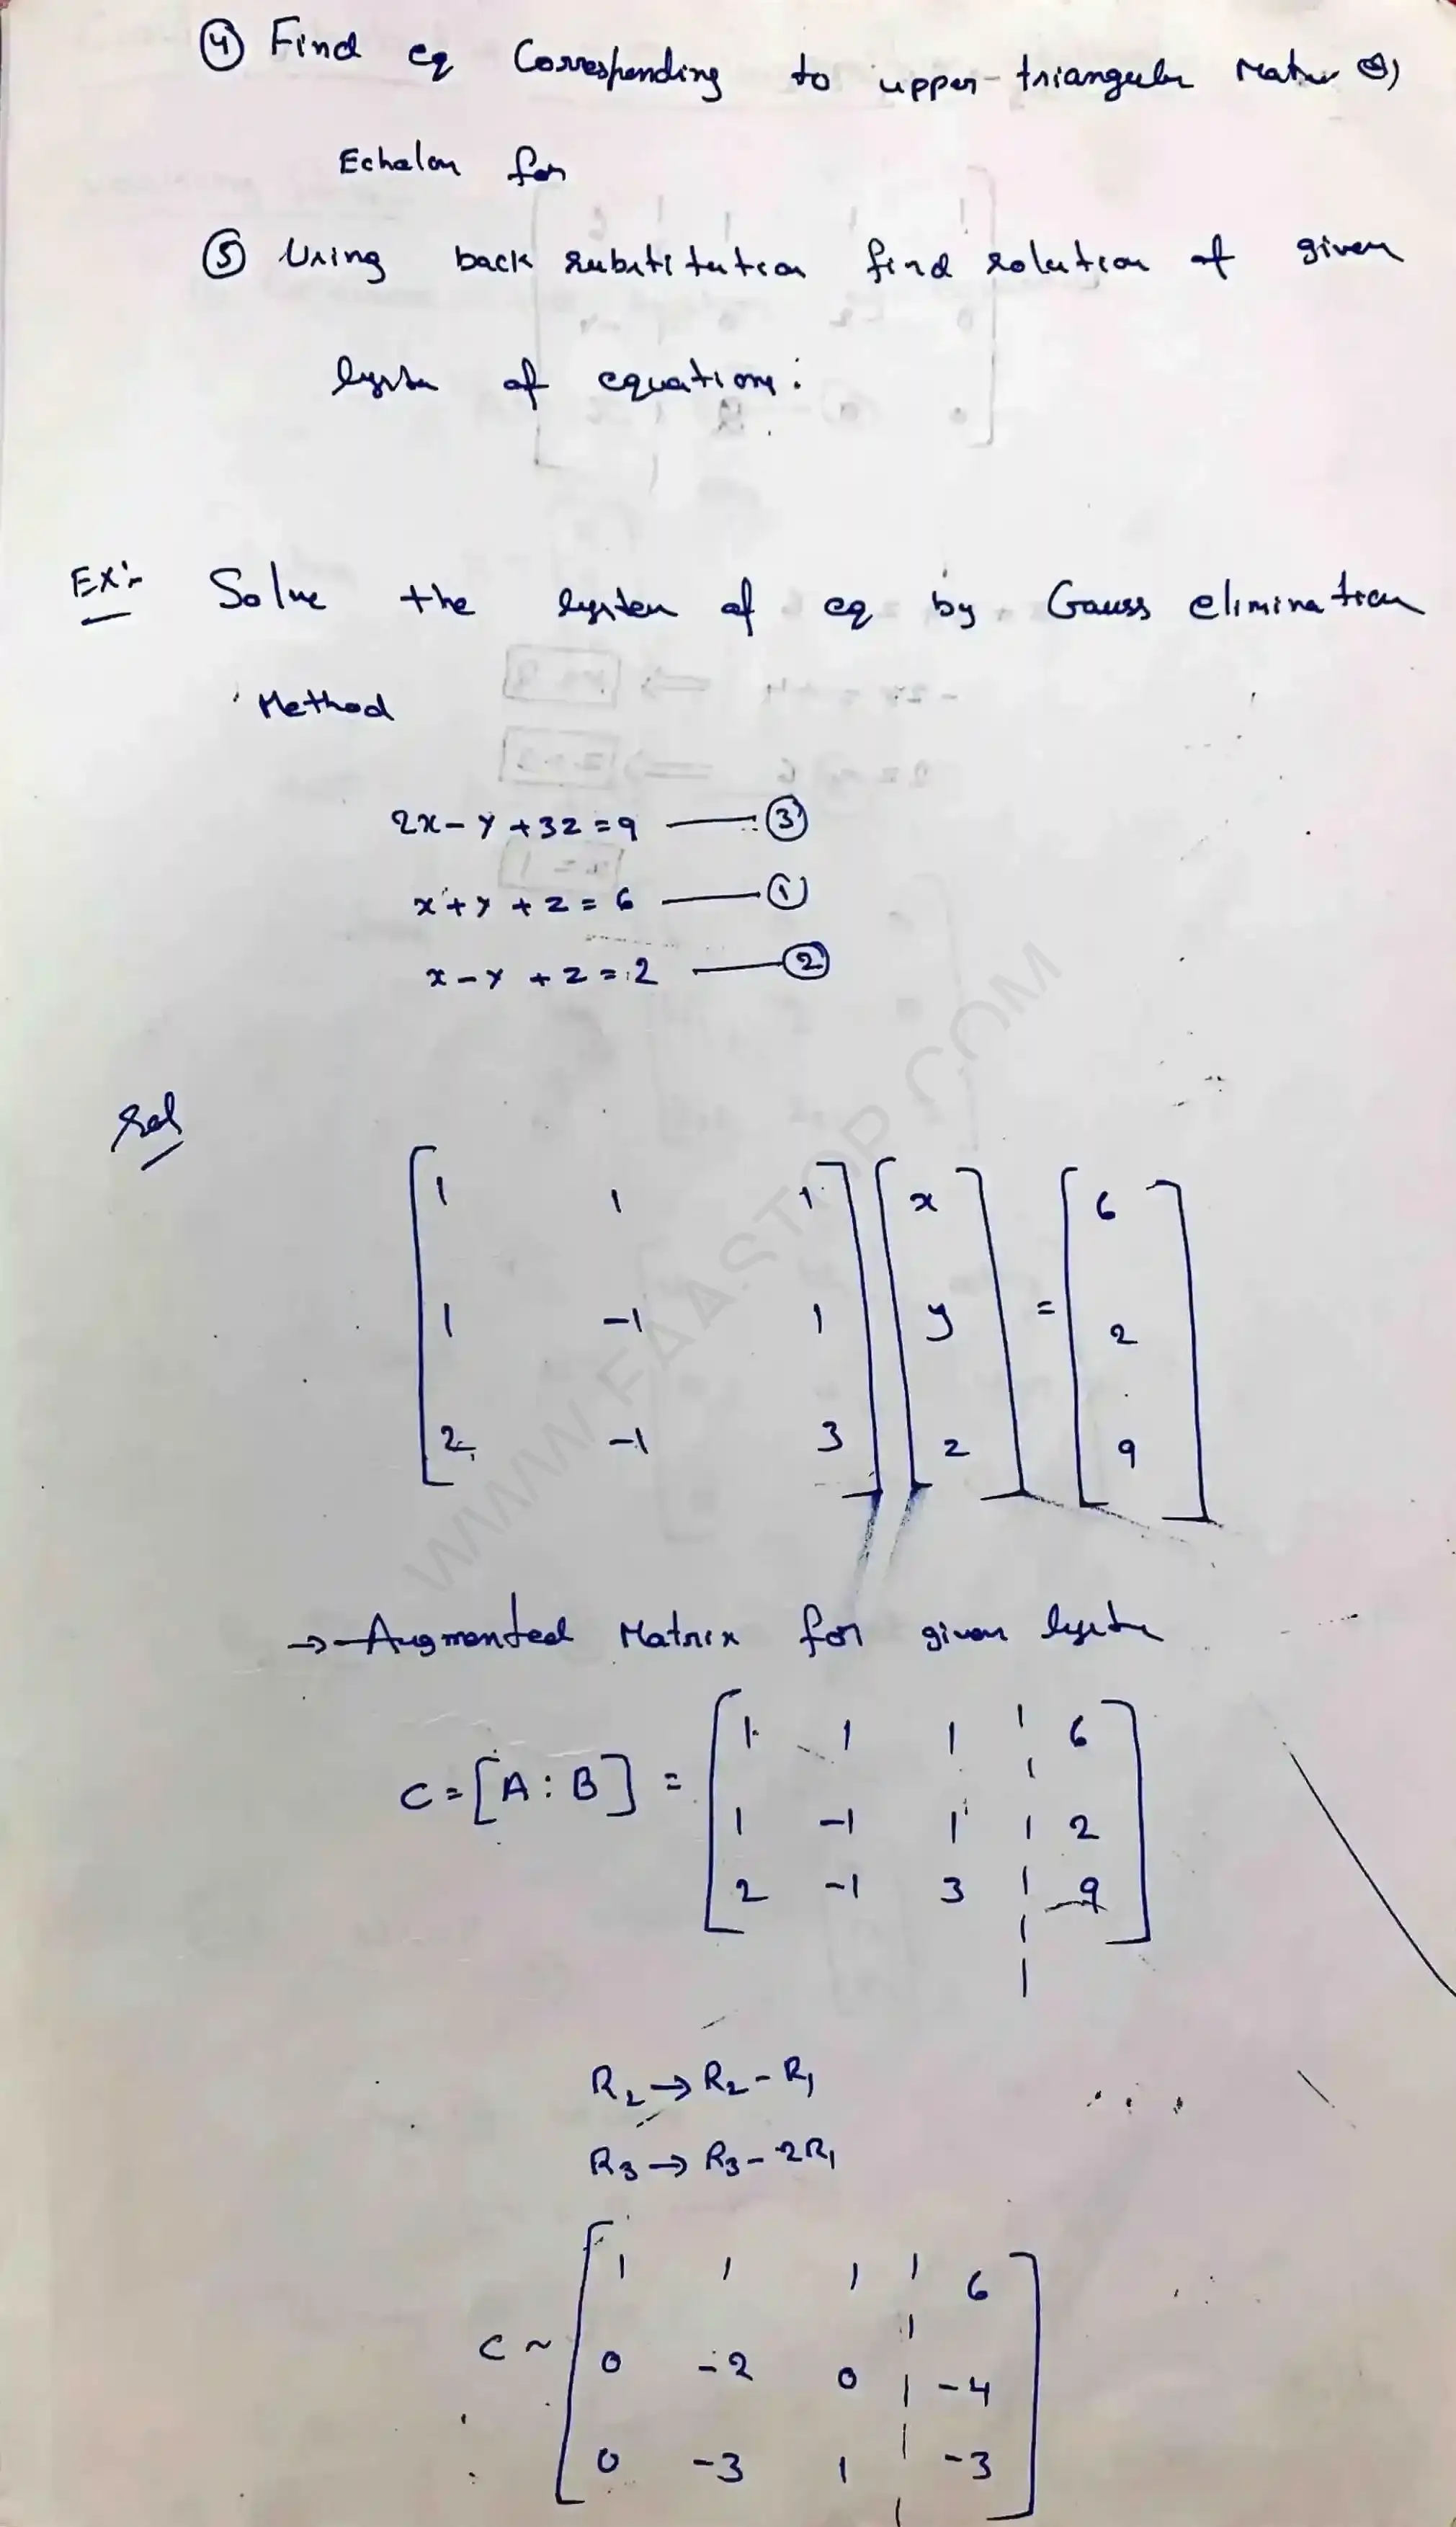 ④ Find eq Corresponding to upper-triangular Matrix (or)
Echelon for
⑤ Using back substitution find solution of given
system of equations:
Ex:- Solve the system of eq by Gauss elimination
Method
2x - y + 3z = 9 —— ③
x + y + z = 6 —— ①
x - y + z = 2 —— ②
Sol
[ 1 1 1 ] [ x ] [ 6 ]
[ 1 -1 1 ] [ y ] = [ 2 ]
[ 2 -1 3 ] [ z ] [ 9 ]
→ Augmented Matrix for given system
C = [A : B] = [ 1 1 1 | 6 ]
[ 1 -1 1 | 2 ]
[ 2 -1 3 | 9 ]
R₂ → R₂ - R₁
R₃ → R₃ - 2R₁
C ~ [ 1 1 1 | 6 ]
[ 0 -2 0 | -4 ]
[ 0 -3 1 | -3 ]
WWW.FAASTOP.COM